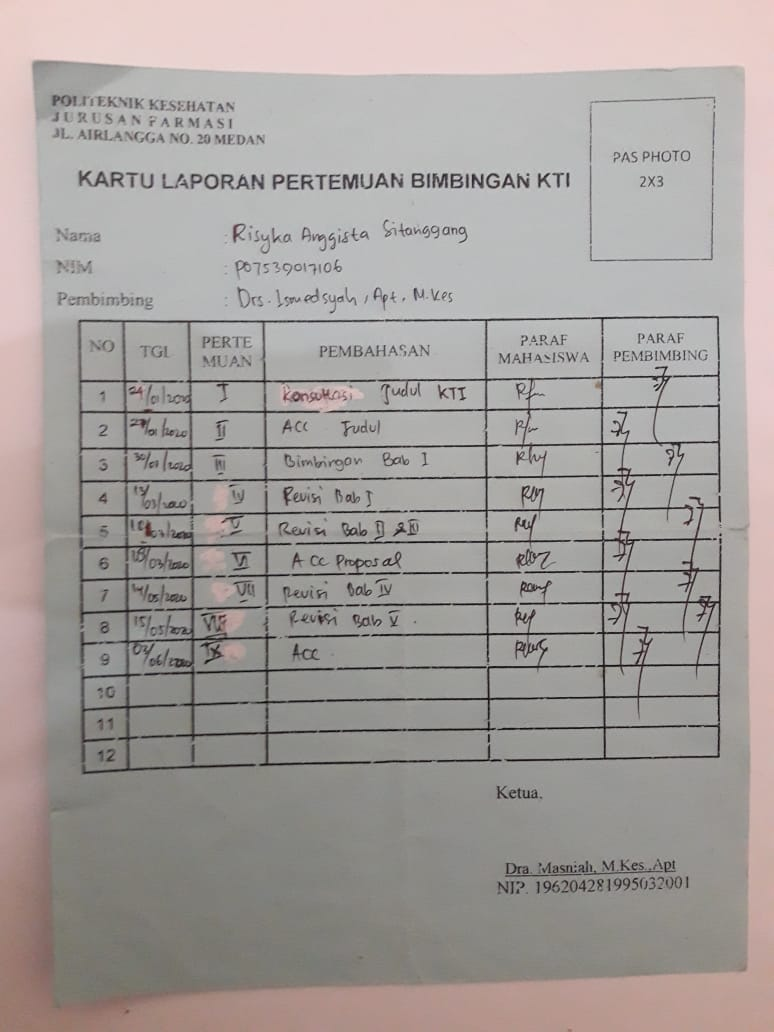 POLITEKNIK KESEHATAN
JURUSAN FARMASI
JL. AIRLANGGA NO. 20 MEDAN
PAS PHOTO
2X3
KARTU LAPORAN PERTEMUAN BIMBINGAN KTI
Nama : Risyka Anggista Sitanggang
NIM : P07539017106
Pembimbing : Drs. Ismedsyah, Apt, M.Kes
NO TGL PERTE MUAN PEMBAHASAN PARAF MAHASISWA PARAF PEMBIMBING
1 24/01/2020 I Konsultasi Judul KTI
2 27/01/2020 II ACC Judul
3 30/01/2020 III Bimbingan Bab I
4 IV Revisi Bab I
5 V Revisi Bab II & III
6 VI ACC Proposal
7 VII Revisi Bab IV
8 15/05/2020 VIII Revisi Bab V.
9 02/06/2020 IX ACC
10
11
12
Ketua,
Dra. Masniah, M.Kes.,Apt
NIP. 196204281995032001